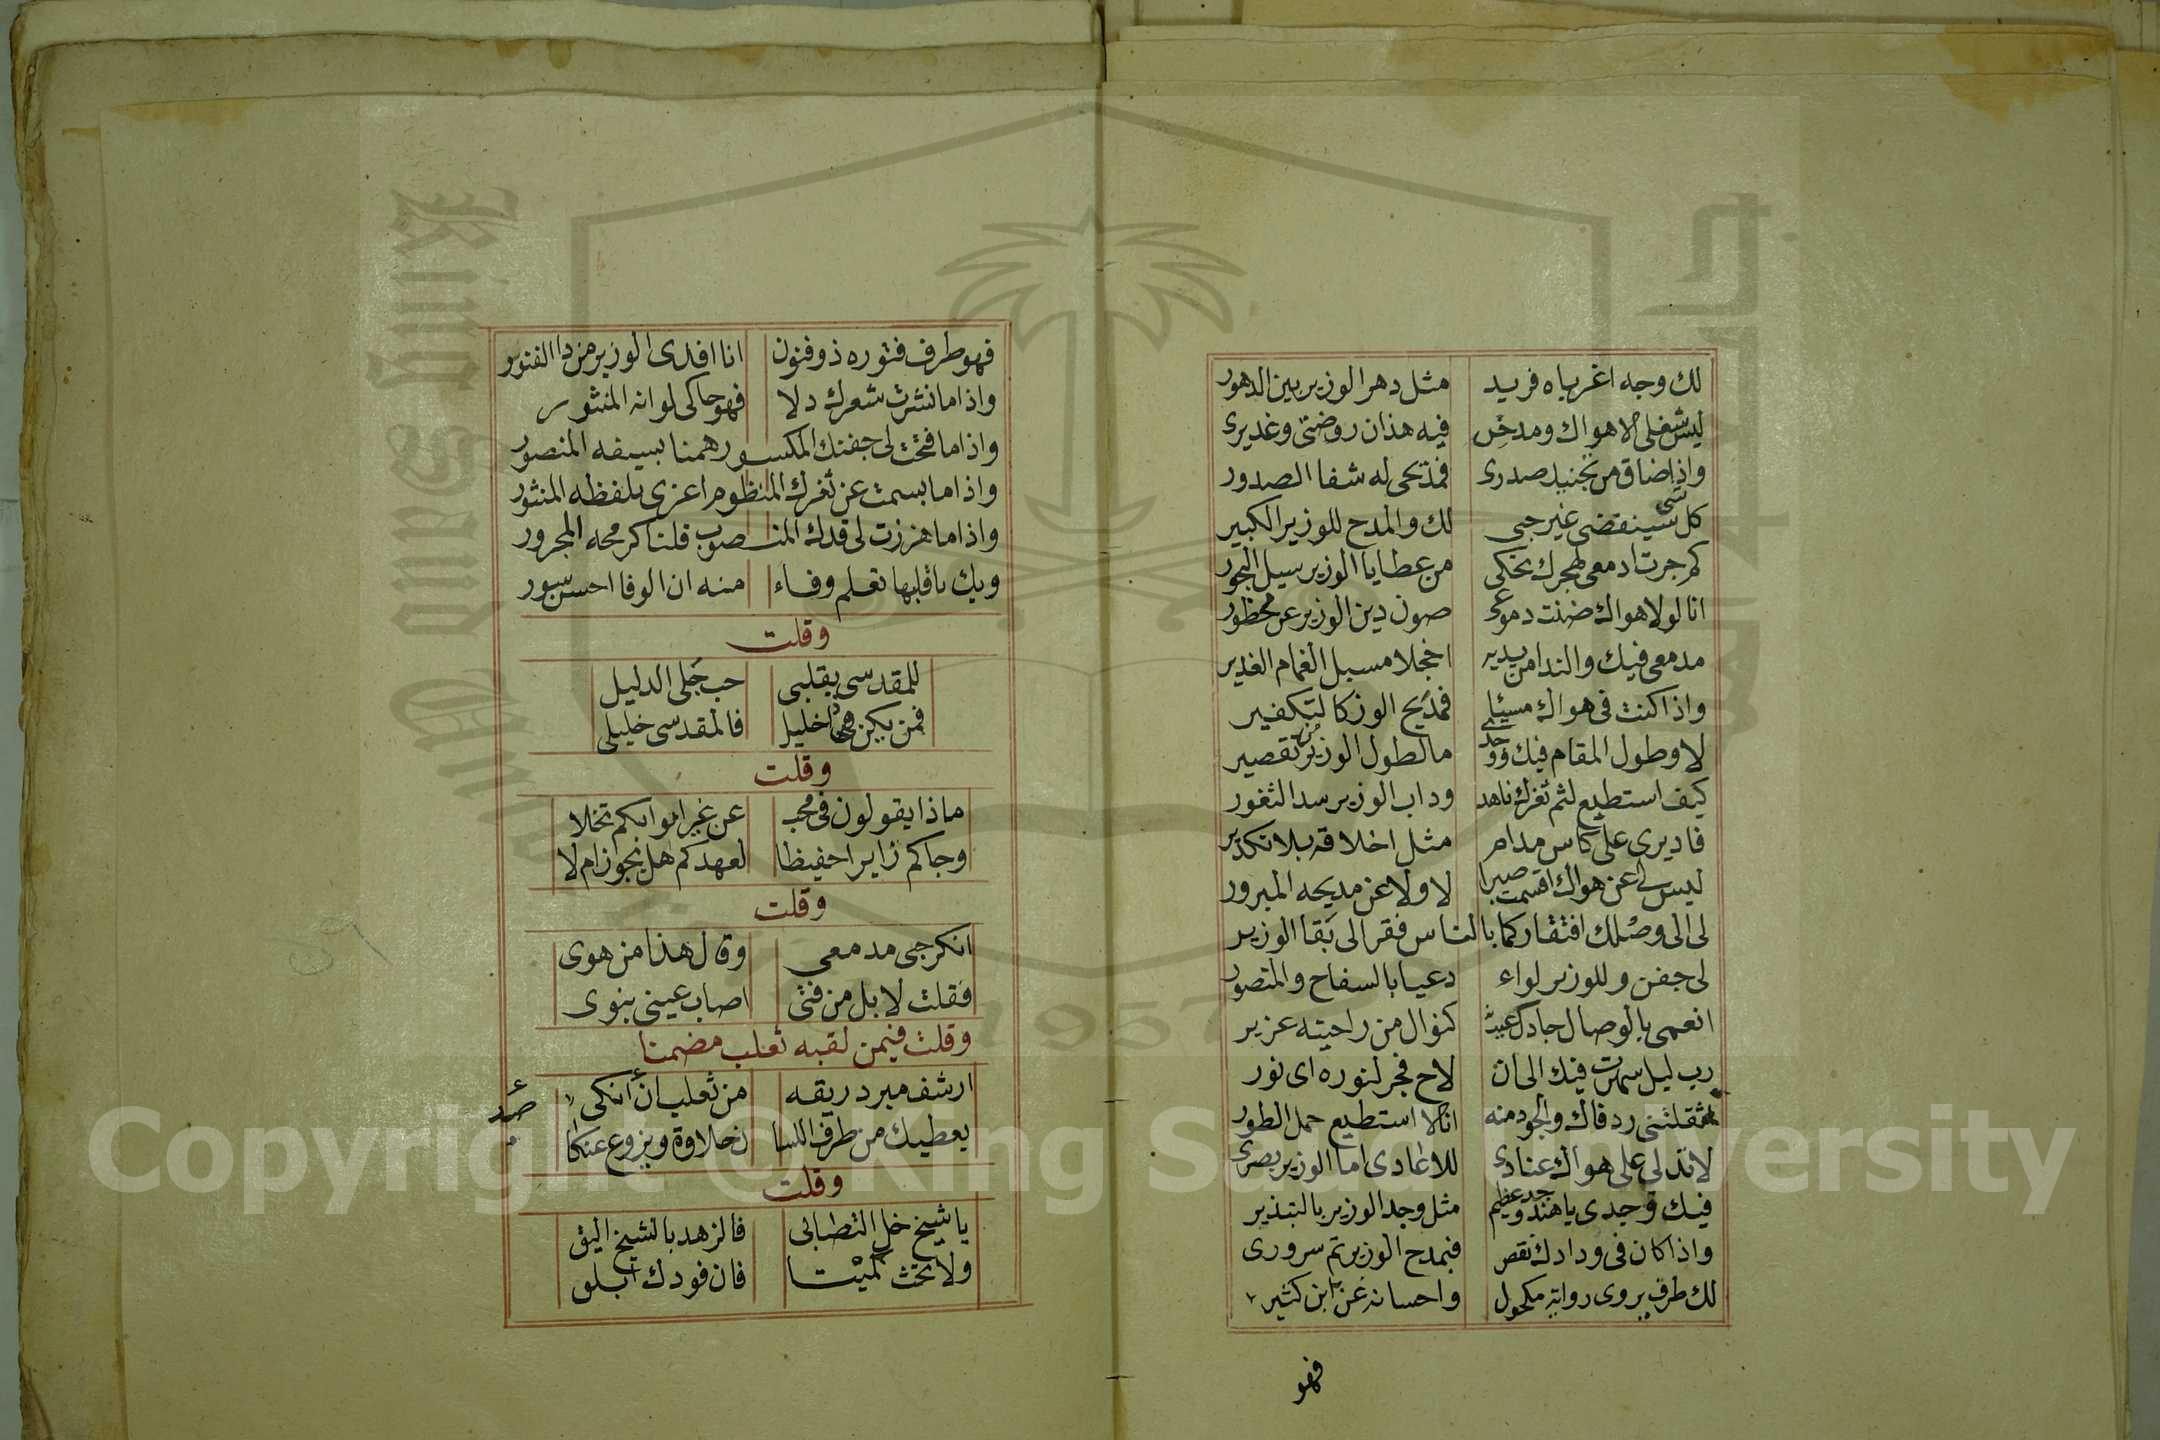 لك وجه اغر باه فريد مثل دهر الوزير بين الدهور
ليس شغلى الا هواك ومدحى فيه هذان روضتى وغديرى
واذا ضاق من تجنيك صدرى فمديحى له شفا الصدور
كل شى سينقضى غير حبى لك والمدح للوزير الكبير
كم جرت ادمعى لهجرك تحكى من عطايا الوزير سيل البحور
انا لولا هواك ضنت دموعى صون دين الوزير عن محظور
مدمعى فيك والندا من يديه اخجلا مسبل الغمام الغدير
واذا كنت فى هواك مسيئا فمديح الوزر كالتكفير
لا وطول المقام فيك ووجدى ما لطول الوزير من تقصير
كيف استطيع لثم ثغرك ناهد وداب الوزير سد الثغور
فاديرى على كاس مدام مثل اخلاقه بلا تكدير
ليس لى عن هواك اقسمت صبرا لا ولا عن مديحه المبرور
لى الى وصلك افتقار كما بالناس فقر الى بقا الوزير
لى جفن وللوزير لواء دعيا بالسفاح والمنصور
انعمى بالوصال جادك غيث كنوال من راحيته عزير
رب ليل سهرت فيك الى ان لاح فجر لنوره اى نور
اثقلتنى ردفاك والجود منه انا لا استطيع حمل الطور
لا تدلى على هواك عنادى للاعادى اما الوزير بصرى
فيك وجدى يا هند وجد عظيم مثل وجد الوزير بالتبذير
واذا كان فى ودادك نقص فبمدح الوزير تم سرورى
لك طرف يروى رواية مكحول واحسانه عن ابن كثير
فهو
فهو طرف فتوره ذو فنون انا افدى الوزير من ذا الفتور
واذا ما نثرت شعرك دلا فهو حاكى لوانه المنشور
واذا ما فتحت لى جفنك المكسور همنا بسيفه المنصور
واذا ما بسمت عن ثغرك المنظوم اعزى بلفظه المنثور
واذا ما هززت لى قدك المنصوب قلنا كرمحه المجرور
ويك يا قلبها تعلم وفاء منه ان الوفا احسن سور
وقلت
للمقدسى بقلبى حب جلى الدليل
فمن يكن خليلا فالمقدسى خليلى
وقلت
ماذا يقولون فى محب عن غير ابوابكم تخلا
وجاكم زايرا حفيظا لعهدكم هل يجوز ام لا
وقلت
انكر حبى مدمعى وقال هذا من هوى
فقلت لا بل من فتى اصاب عينى بنوى
وقلت فيمن لقبه ثعلب مضمنا
ارشف مبرد ريقه من ثعلب ان انكى
يعطيك من طرف اللسا ن حلاوة ويزوع عنكا
وقلت
يا شيخ خل التصابى فالزهد بالشيخ اليق
ولا تحث كميتا فان فودك ابلق